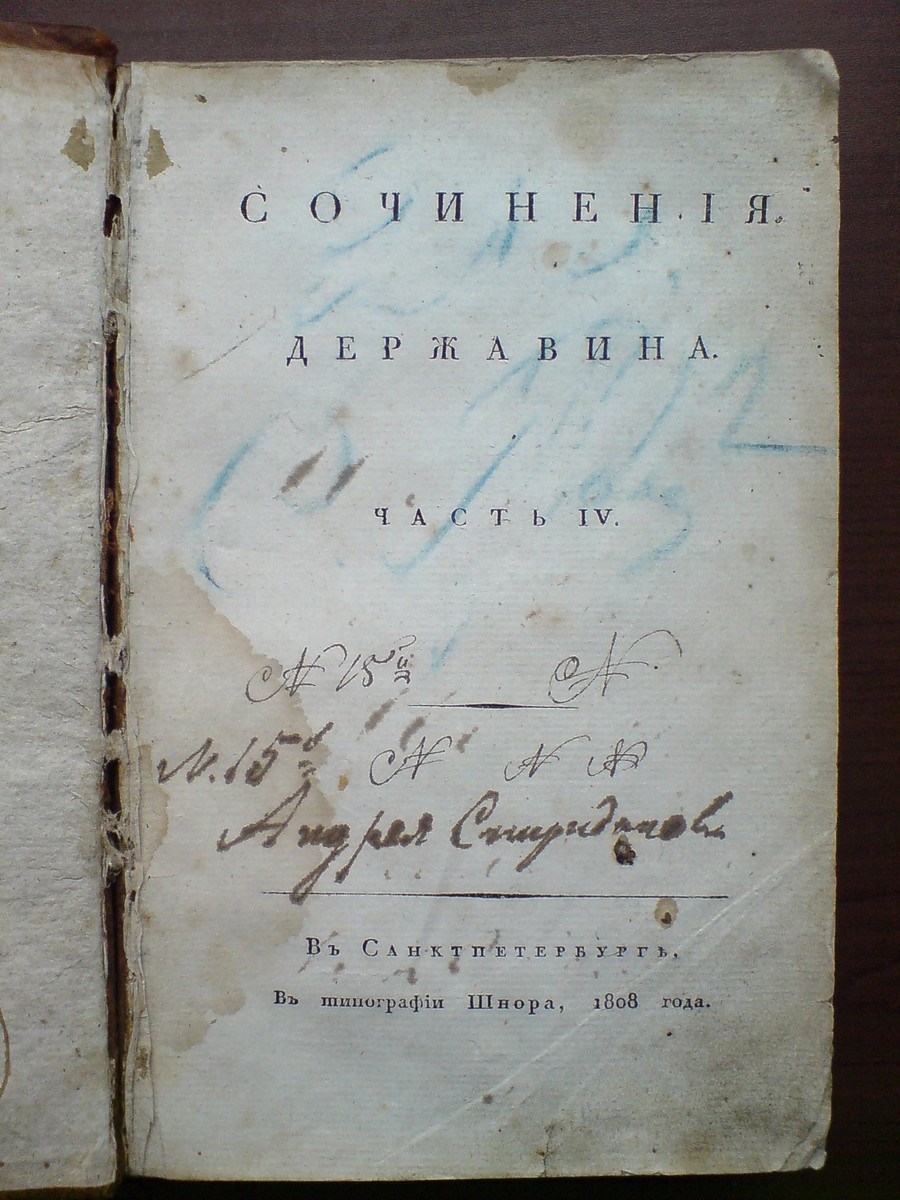 СОЧИНЕНІЯ
ДЕРЖАВИНА.
ЧАСТЬ IV.
N 15й N.
N. 15й N N N
Андрея Спиридонова
Въ Санктпетербургѣ,
Въ типографіи Шнора, 1808 года.